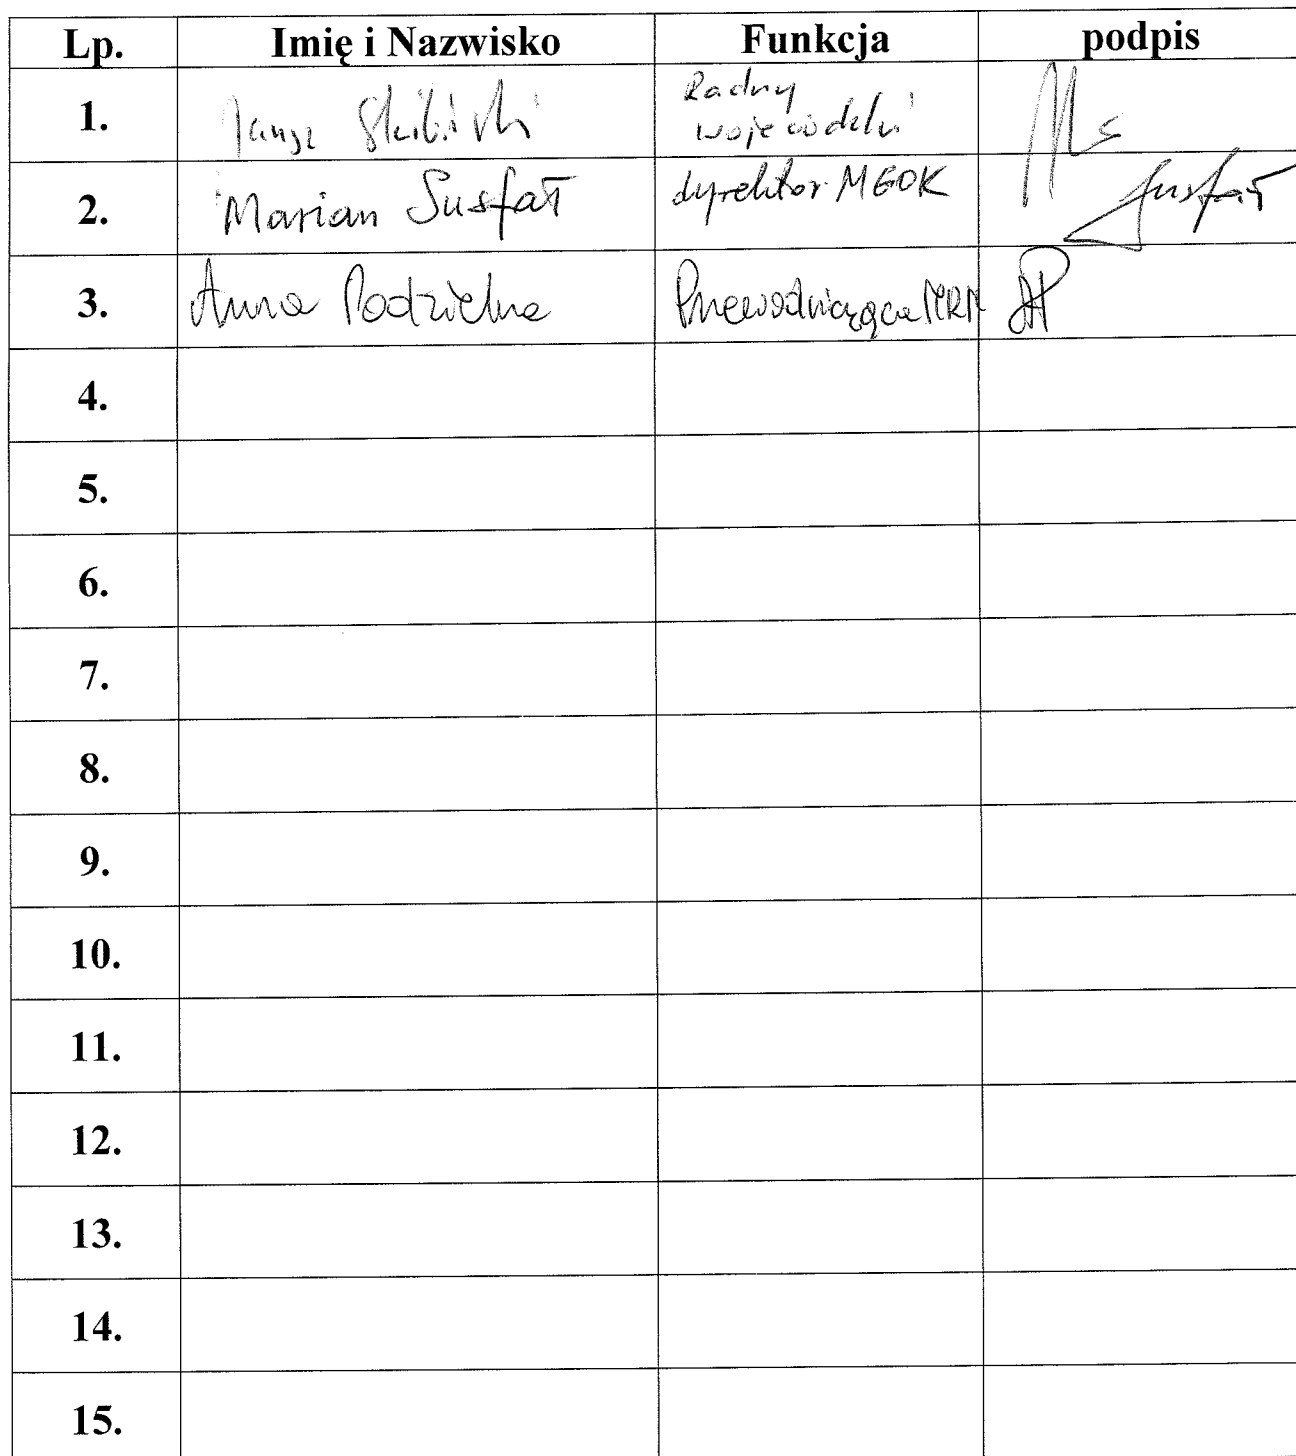 Lp. Imię i Nazwisko Funkcja podpis
1. Skibiński Radny
wojewódzki
2. Marian Susfał dyrektor MGOK Susfał
3. Anna Podzielna Przewodnicząca MRM AP
4.
5.
6.
7.
8.
9.
10.
11.
12.
13.
14.
15.